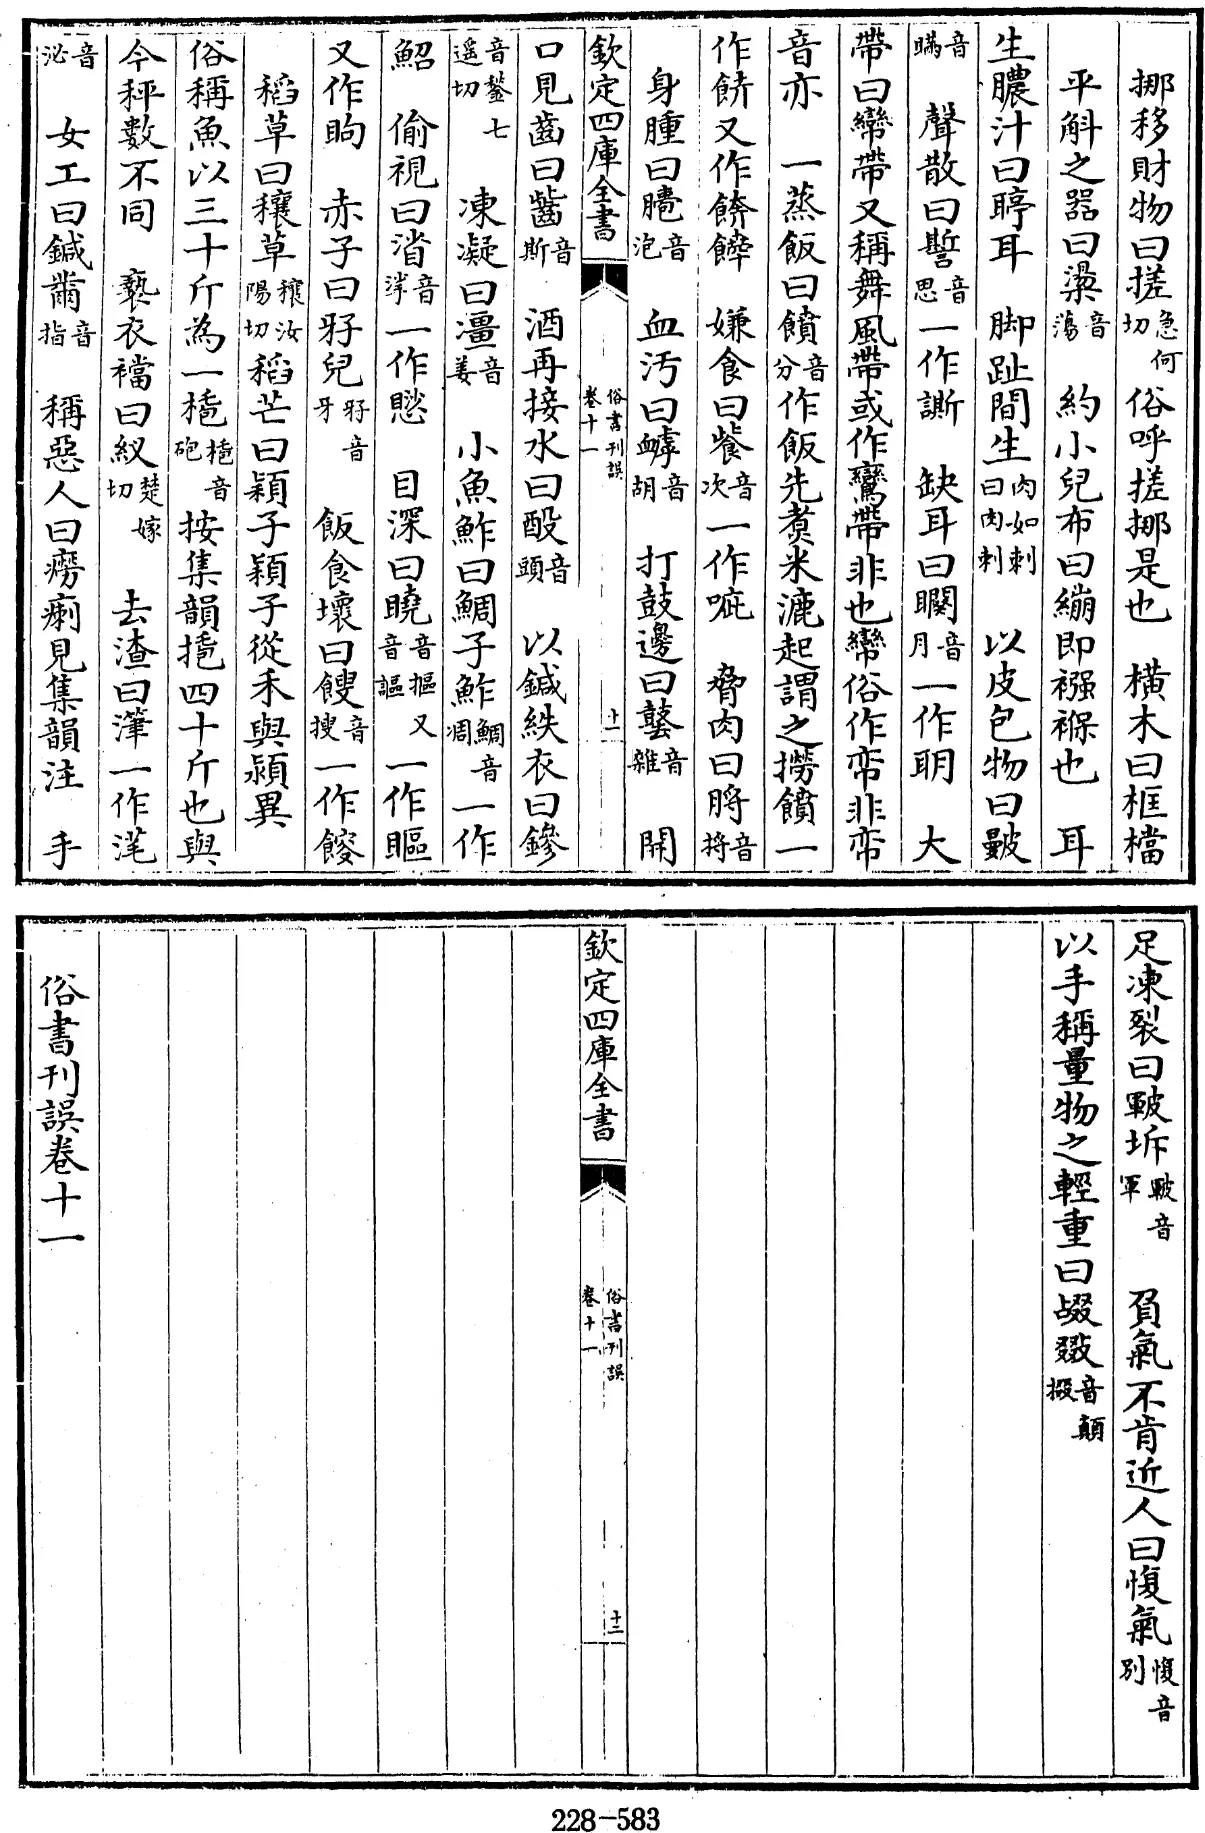 挪移財物曰搓急何切俗呼搓挪是也　橫木曰框檔
平斛之器曰梁音蕩　約小兒布曰繃即襁褓也　耳
生膿汁曰聤耳　脚趾間生肉如刺曰肉刺　以皮包物曰鼜
音瞞　聲散曰㽄音思一作誓斯　缺耳曰䦧音月一作明　大
帶曰帶又稱舞風帶或作鸞帶非也俗作帘非帘
音亦　一蒸飯曰饙音分作飯先煑米漉起謂之撈饙一
作餅又作餴饆　嫌食曰飺音次一作呲　脅肉曰脟音捋
身腫曰音疱　血汚曰衃音胡　打鼓邊曰音雜　開
欽定四庫全書
俗書刊誤
卷十一
十一
口見齒曰齜音斯　酒再接水曰酘音頭　以鍼紩衣曰鏒
音鏊七遥切　凍凝曰音姜　小魚鮓曰鯛子鮓鯛音凋一作
鮉　偷視曰音䀏一作愗　目深曰音摳又音謳一作瞘
又作眗　赤子曰孲兒孲音牙　飯食壞曰餿音搜一作餕
稻草曰穰草穰汝陽切稻芒曰穎子穎子從禾與潁異
俗稱魚以三十斤為一音砲　按集韻四十斤也與
今秤數不同　褻衣襠曰衩楚嫁切　去渣曰潷一作滗
音泌　女工曰鍼黹音指　稱惡人曰癆瘌見集韻注　手
足凍裂曰皸坼皸音軍　負氣不肯近人曰愎氣愎音別
以手稱量物之輕重曰敁敠音顛掇
欽定四庫全書
俗書刊誤
卷十一
十二
俗書刊誤卷十一
228-583